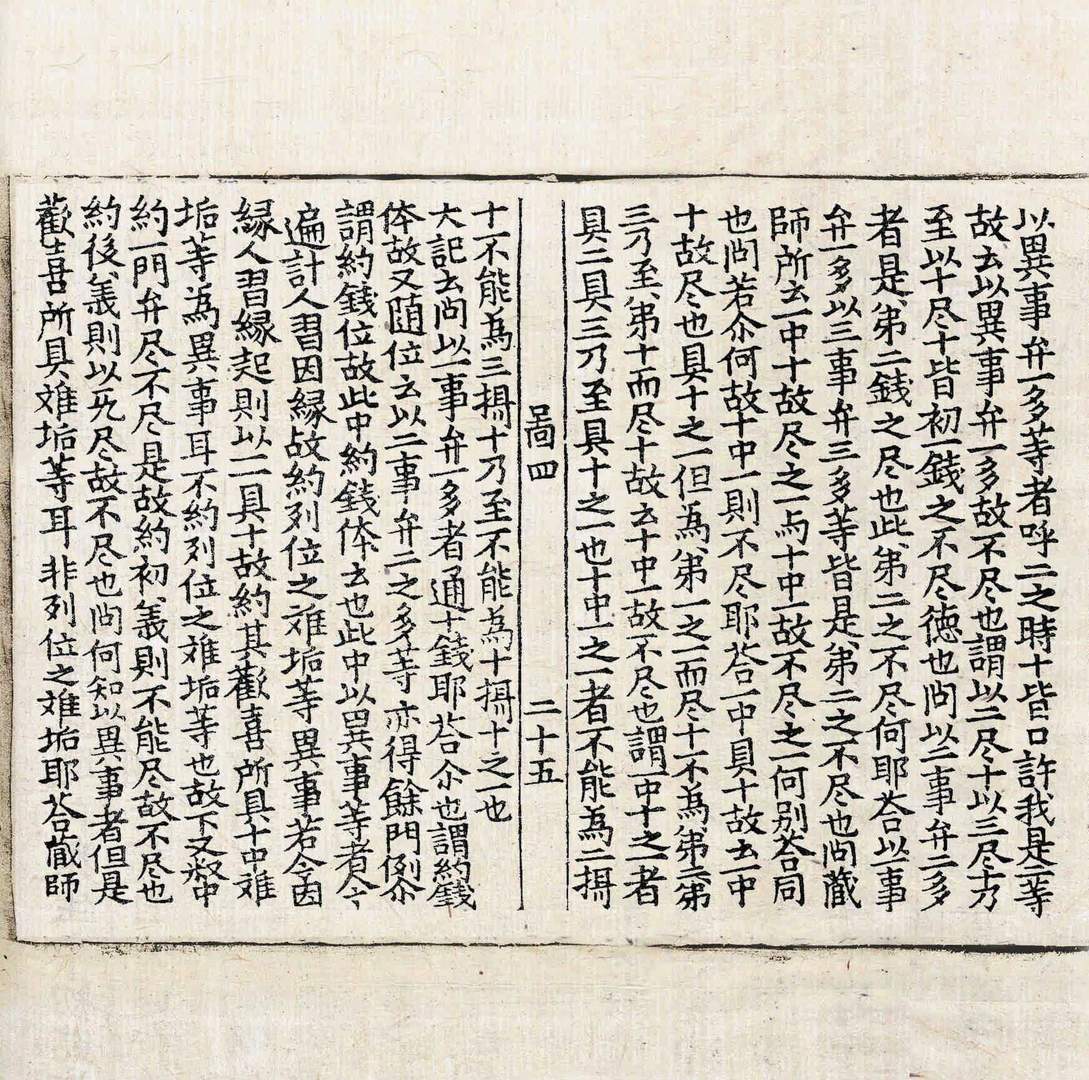 以異事弁一多等者呼二之時十皆口許我是二等
故去以異事弁一多故不尽也謂以二尽十以三尽十乃
至以十尽十皆初一錢之不尽德也問以二事弁二多
者是第二錢之尽也此第二之不尽何耶荅以一事
弁一多以三事弁三多等皆是第二之不尽也問藏
師所云一中十故尽之一与十中一故不尽之一何别荅同
也問若尒何故十中一則不尽耶荅一中具十故云一中
十故尽也具十之一但為第一之一而尽十一不為第二第
三乃至第十而尽十故云十中一故不尽也謂一中十之一者
具二具三乃至具十之一也十中一之一者不能為二攝
啚四 二十五
十一不能為三攝十乃至不能為十攝十之一也
大記云問以一事弁一多者通十錢耶荅尒也謂約錢
体故又随位云以二事弁二之多等亦得餘門例尒
謂約錢位故此中約錢体云也此中以異事等者今
遍計人習因縁故約列位之难垢等異事若今因
縁人習縁起則以一具十故約其歡喜所具十中难
垢等為異事耳不約列位之难垢等也故下文釈中
約一門弁尽不尽是故約初義則不能尽故不尽也
約後義則以旡尽故不尽也問何知以異事者但是
歡喜所具难垢等耳非列位之难垢耶荅藏師